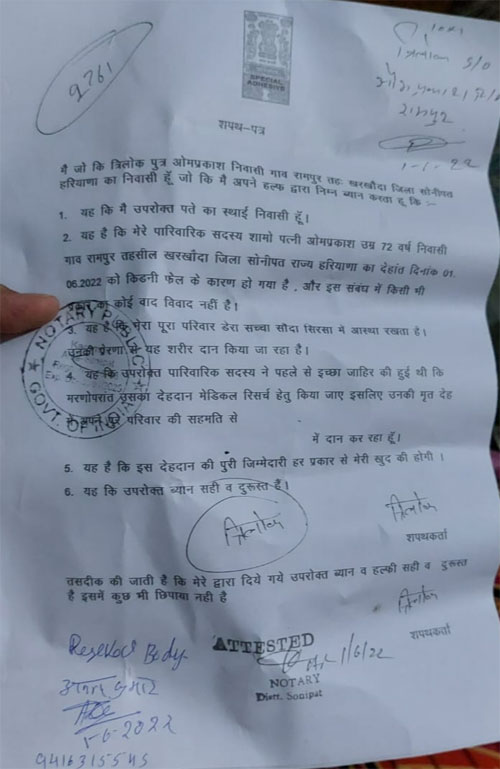 2761
त्रिलोक S/O
रामपुर
1-6-22
SPECIAL
ADHESIVE
शपथ-पत्र
मै जो कि त्रिलोक पुत्र ओमप्रकाश निवासी गाव रामपुर तहः खरखौदा जिला सोनीपत
हरियाणा का निवासी हूँ जो कि मै अपने हल्फ द्वारा निम्न ब्यान करता हूं कि :-
1. यह कि मै उपरोक्त पते का स्थाई निवासी हूँ।
2. यह कि मेरे पारिवारिक सदस्य शामो पत्नी ओमप्रकाश उम्र 72 वर्ष निवासी
गाव रामपुर तहसील खरखौदा जिला सोनीपत राज्य हरियाणा का देहांत दिनांक 01.
06.2022 को किडनी फेल के कारण हो गया है , और इस संबंध में किसी भी
का कोई वाद विवाद नहीं है।
3. यह है कि मेरा पूरा परिवार डेरा सच्चा सौदा सिरसा में आस्था रखता है।
उनकी प्रेरणा से यह शरीर दान किया जा रहा है।
4. यह कि उपरोक्त पारिवारिक सदस्य ने पहले से इच्छा जाहिर की हुई थी कि
मरणोपरांत उसका देहदान मेडिकल रिसर्च हेतु किया जाए इसलिए उनकी मृत देह
अपने पूरे परिवार की सहमति से
में दान कर रहा हूँ।
5. यह है कि इस देहदान की पुरी जिम्मेदारी हर प्रकार से मेरी खुद की होगी ।
6. यह कि उपरोक्त ब्यान सही व दुरूस्त हैं।
NOTARY PUBLIC
GOVT. OF INDIA
त्रिलोक
त्रिलोक
शपथकर्ता
तसदीक की जाती है कि मेरे द्वारा दिये गये उपरोक्त ब्यान व हल्फी सही व दुरूस्त
है इसमें कुछ भी छिपाया नही है
त्रिलोक
शपथकर्ता
ATTESTED
1/6/22
NOTARY
Distt. Sonipat
Body
कुमार
1-6-2022
9416315545